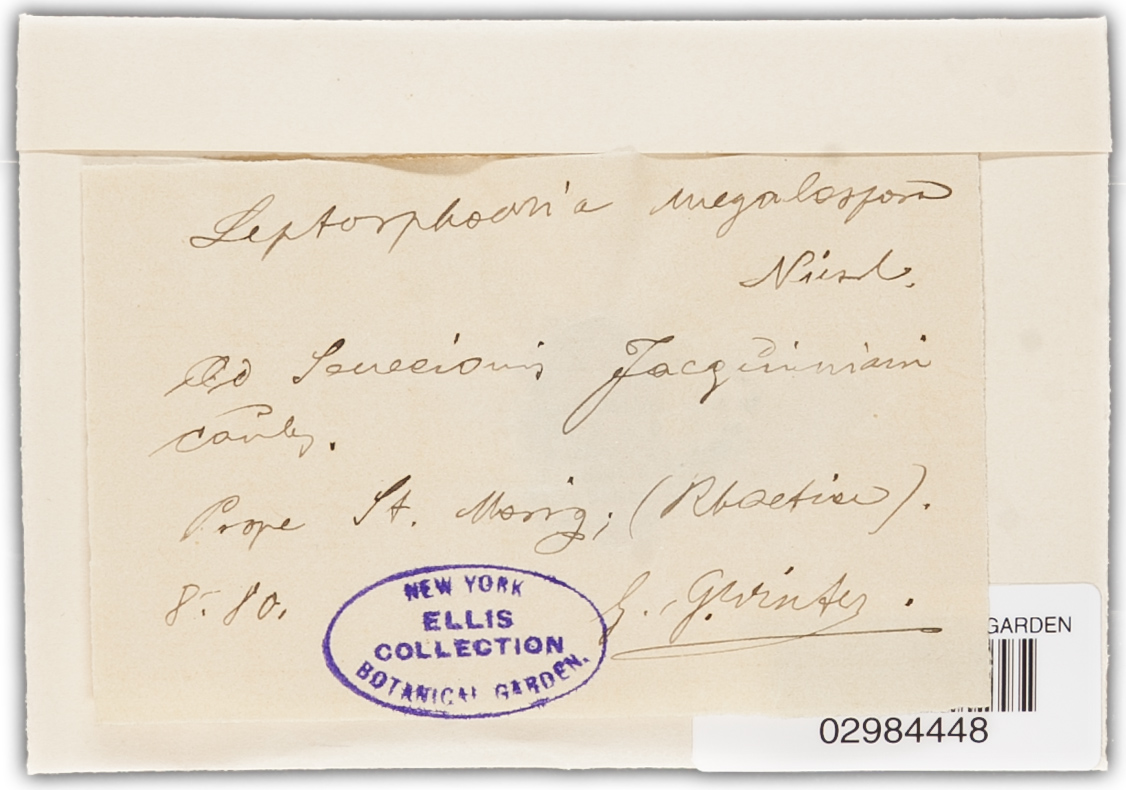 Leptosphaeria megalospora
Niessl.
Ad Senecionis Jacquiniani
caules.
Prope St. Moriz, (Rhaetiae).
8. 80.
G. Winter.
NEW YORK
ELLIS
COLLECTION
BOTANICAL GARDEN.
GARDEN
02984448